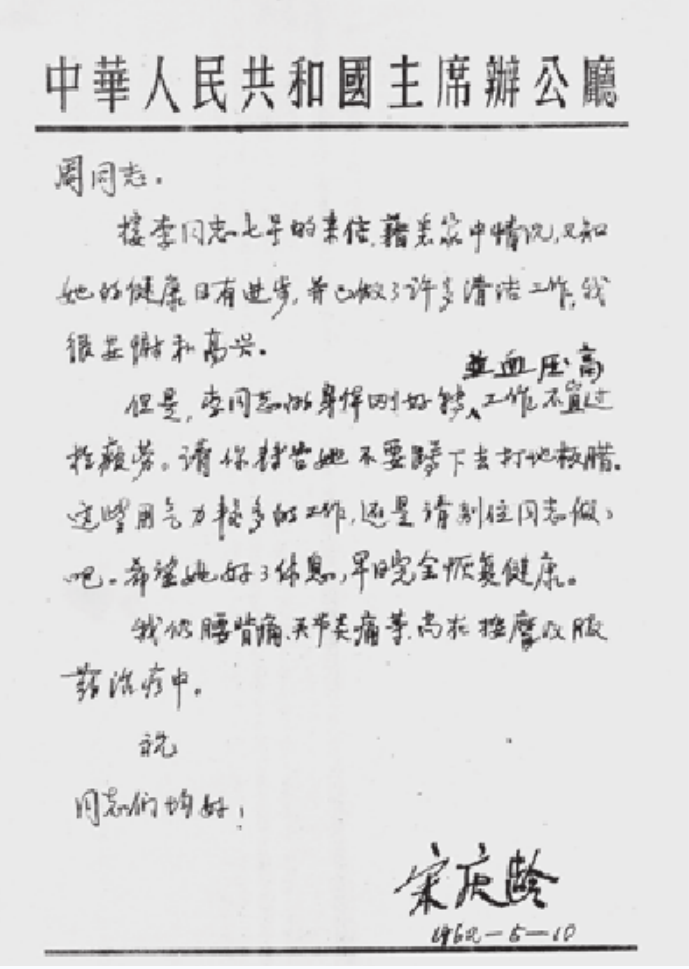 中華人民共和國主席辦公廳
周同志.
接李同志七号的来信,藉悉家中情况,又知
她的健康日有进步,并已做了许多清洁工作,我
很安慰和高兴.
並血压高
但是,李同志的身体刚好转,工作不宜过
於疲劳。请你转告她不要蹲下去打地板腊.
这些用气力较多的工作,还是请别位同志做
吧.希望她好了休息,早日完全恢复健康。
我仍腰背痛,关节炎痛等,尚在按摩及服
药治疗中。
祝
同志们均好!
宋庆龄
1962-5-10